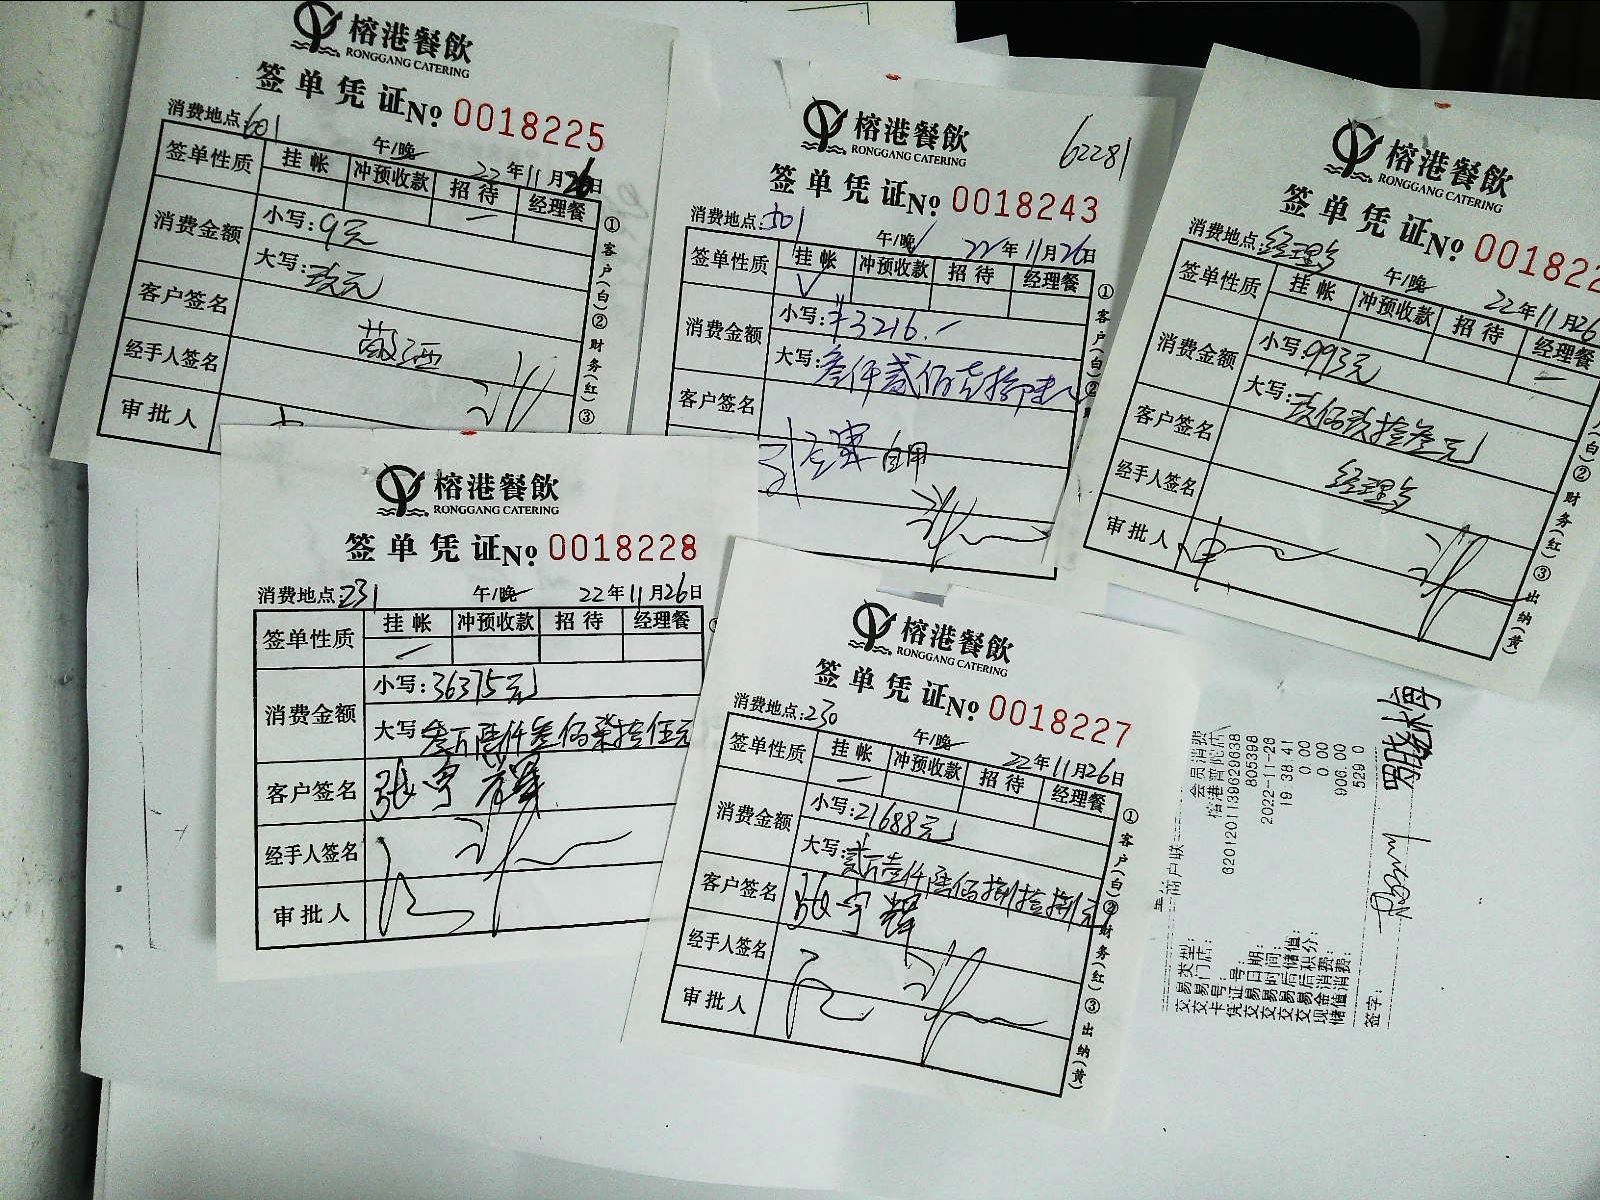 榕港餐飲
RONGGANG CATERING
签单凭证No. 0018225
消费地点:601 午/晚 22年11月26日
签单性质 挂帐 冲预收款 招待 经理餐
消费金额 小写:9元
大写:玖元
客户签名
经手人签名
审批人
①客户(白)②财务(红)③
榕港餐飲
RONGGANG CATERING
62281
签单凭证No. 0018243
消费地点:301 午/晚 22年11月26日
签单性质 挂帐 冲预收款 招待 经理餐
消费金额 小写:¥3216.-
大写:叁仟贰佰壹拾陆元
客户签名
自用
①客户(白)②
榕港餐飲
RONGGANG CATERING
签单凭证No. 001822
消费地点:经理餐 午/晚 22年11月26
签单性质 挂帐 冲预收款 招待 经理餐
消费金额 小写:993元
大写:玖佰玖拾叁元
客户签名
经手人签名 经理餐
审批人
(白)②财务(红)③出纳(黄)
榕港餐飲
RONGGANG CATERING
签单凭证No. 0018228
消费地点:231 午/晚 22年11月26日
签单性质 挂帐 冲预收款 招待 经理餐
消费金额 小写:36375元
大写 叁万陆仟叁佰柒拾伍元
客户签名 张宇辉
经手人签名
审批人
榕港餐飲
RONGGANG CATERING
签单凭证No. 0018227
消费地点:230 午/晚 22年11月26日
签单性质 挂帐 冲预收款 招待 经理餐
消费金额 小写:21688元
大写:贰万壹仟陆佰捌拾捌元
客户签名 张宇辉
经手人签名
审批人
①客户(白)②财务(红)③出纳(黄)
商户联
交易类型: 会员消费
交易门店: 榕港普陀店
卡号: 6201201139629638
凭证号: 805398
交易日期: 2022-11-26
交易时间: 19 38 41
交易后储值: 0 00
交易后积分: 0 00
现金消费: 906.00
储值消费: 529 0
签字: